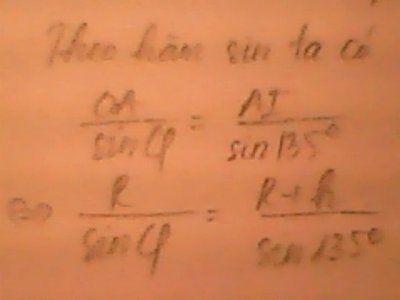 Theo hàm sin ta có
OA / sin φ = AI / sin 135°
⇔ R / sin φ = R + h / sin 135°